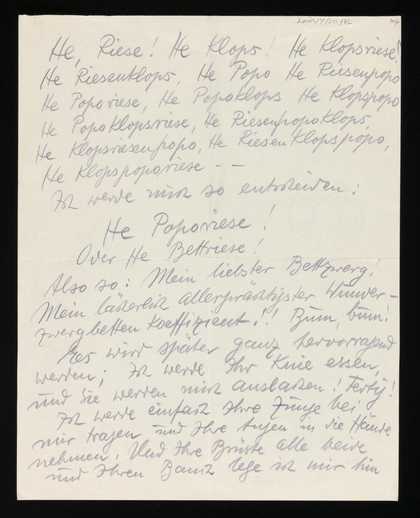 He, Riese! He Klops! He Klopsriese!
He Riesenklops, He Popo He Riesenpopo
He Poporiese, He Popoklops He Klopspopo
He Popoklopsriese, He Riesenpopoklops,
He Klopsriesenpopo, He Riesenklopspopo,
He Klopspoporiese --
Ich werde mich so entscheiden:
He Poporiese!
Oder He Bettriese!
Also so: Mein liebster Bettzwerg!
Mein lächerlich allerprächtigster Wunder-
zwergbettenkoeffizient!! Bum, bum!
Es wird später ganz hervorragend
werden; Ich werde Ihr Knie essen,
und Sie werden mich auslachen! Fertig!
Ich werde einfach Ihre Zunge bei
mir tragen und Ihre Augen in die Hände
nehmen. Und Ihre Brüste alle beide
und Ihren Bauch lege ich mir hin